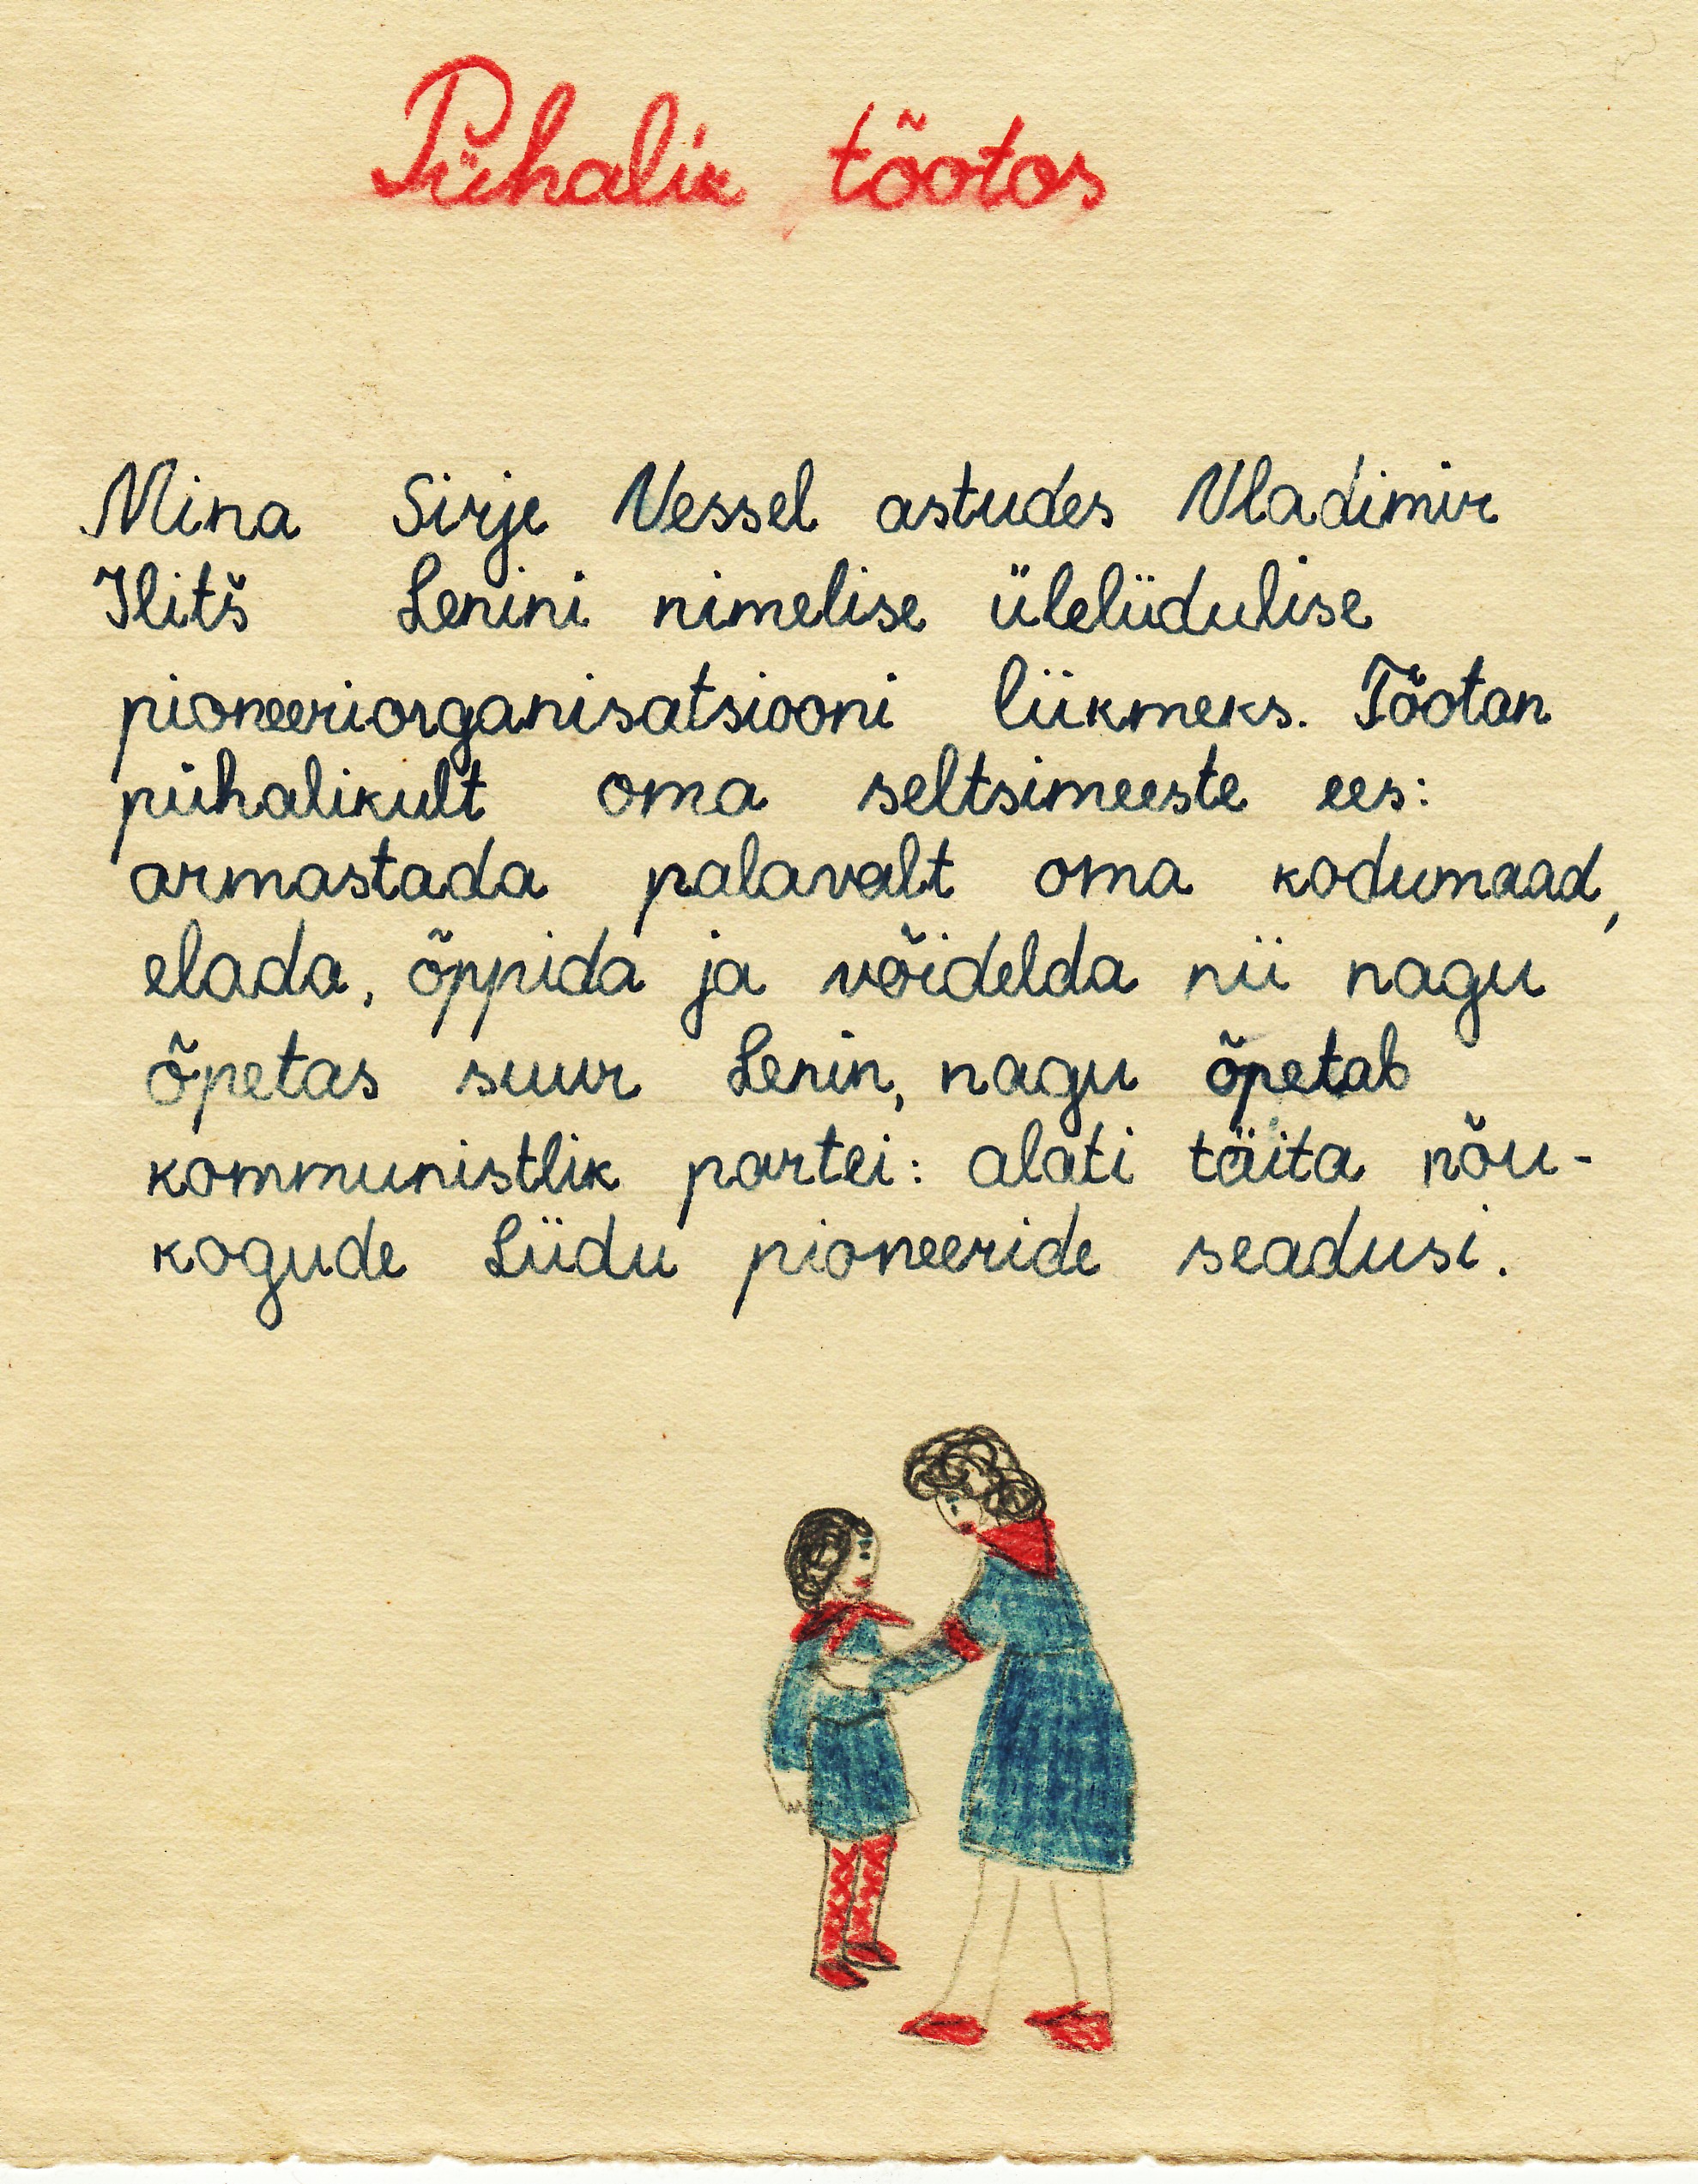 Pühalik tõotos
Mina Sirje Vessel astudes Vladimir
Ilitš Lenini nimelise üleliidulise
pioneeriorganisatsiooni liikmeks. Tõotan
pühalikult oma seltsimeeste ees:
armastada palavalt oma kodumaad,
elada, õppida ja võidelda nii nagu
õpetas suur Lenin, nagu õpetab
kommunistlik partei: alati täita nõu-
kogude Liidu pioneeride seadusi.